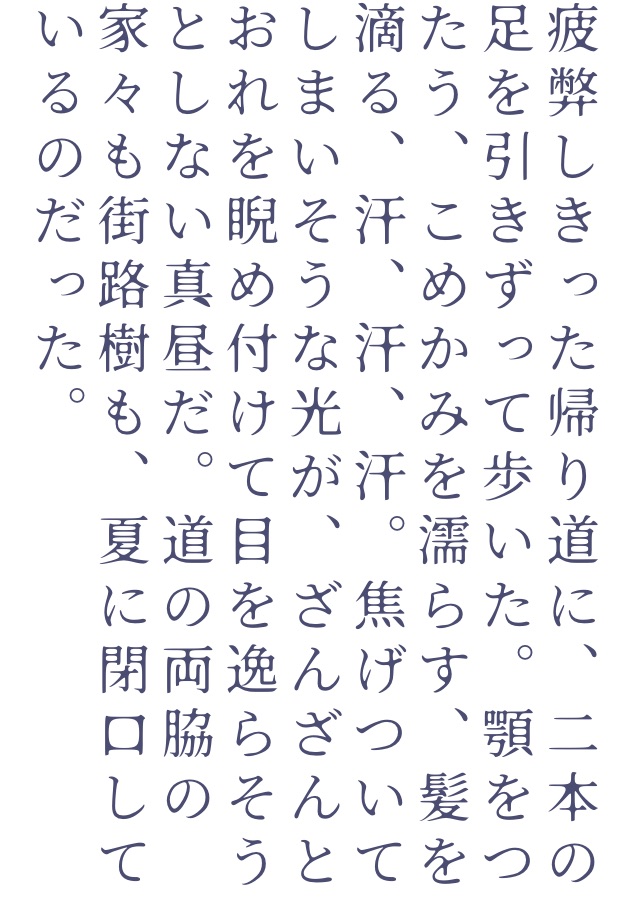 疲弊しきった帰り道に、二本の
足を引きずって歩いた。顎をつ
たう、こめかみを濡らす、髪を
滴る、汗、汗、汗。焦げついて
しまいそうな光が、ざんざんと
おれを睨め付けて目を逸らそう
としない真昼だ。道の両脇の
家々も街路樹も、夏に閉口して
いるのだった。